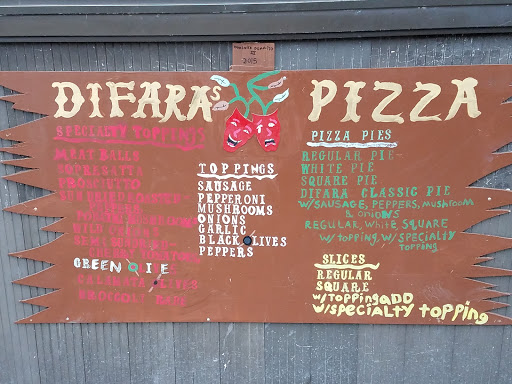 2015
DIFARA'S PIZZA
SPECIALTY TOPPINGS
MEAT BALLS
SOPRESATTA
PROSCIUTTO
SUN DRIED
WILD
SEMI
CHERRY TOMATOES
GREEN OLIVE
CALAMATA OLIVES
BROCCOLI RABE
TOPPINGS
SAUSAGE
PEPPERONI
MUSHROOMS
ONIONS
GARLIC
BLACK OLIVES
PEPPERS
PIZZA PIES
REGULAR PIE-
WHITE PIE
SQUARE PIE
DIFARA CLASSIC PIE
W/SAUSAGE, PEPPERS, MUSHROOM
& ONIONS
REGULAR, WHITE, SQUARE
W/TOPPING, W/SPECIALTY
TOPPING
SLICES
REGULAR
SQUARE
W/TOPPING ADD
W/SPECIALTY TOPPING